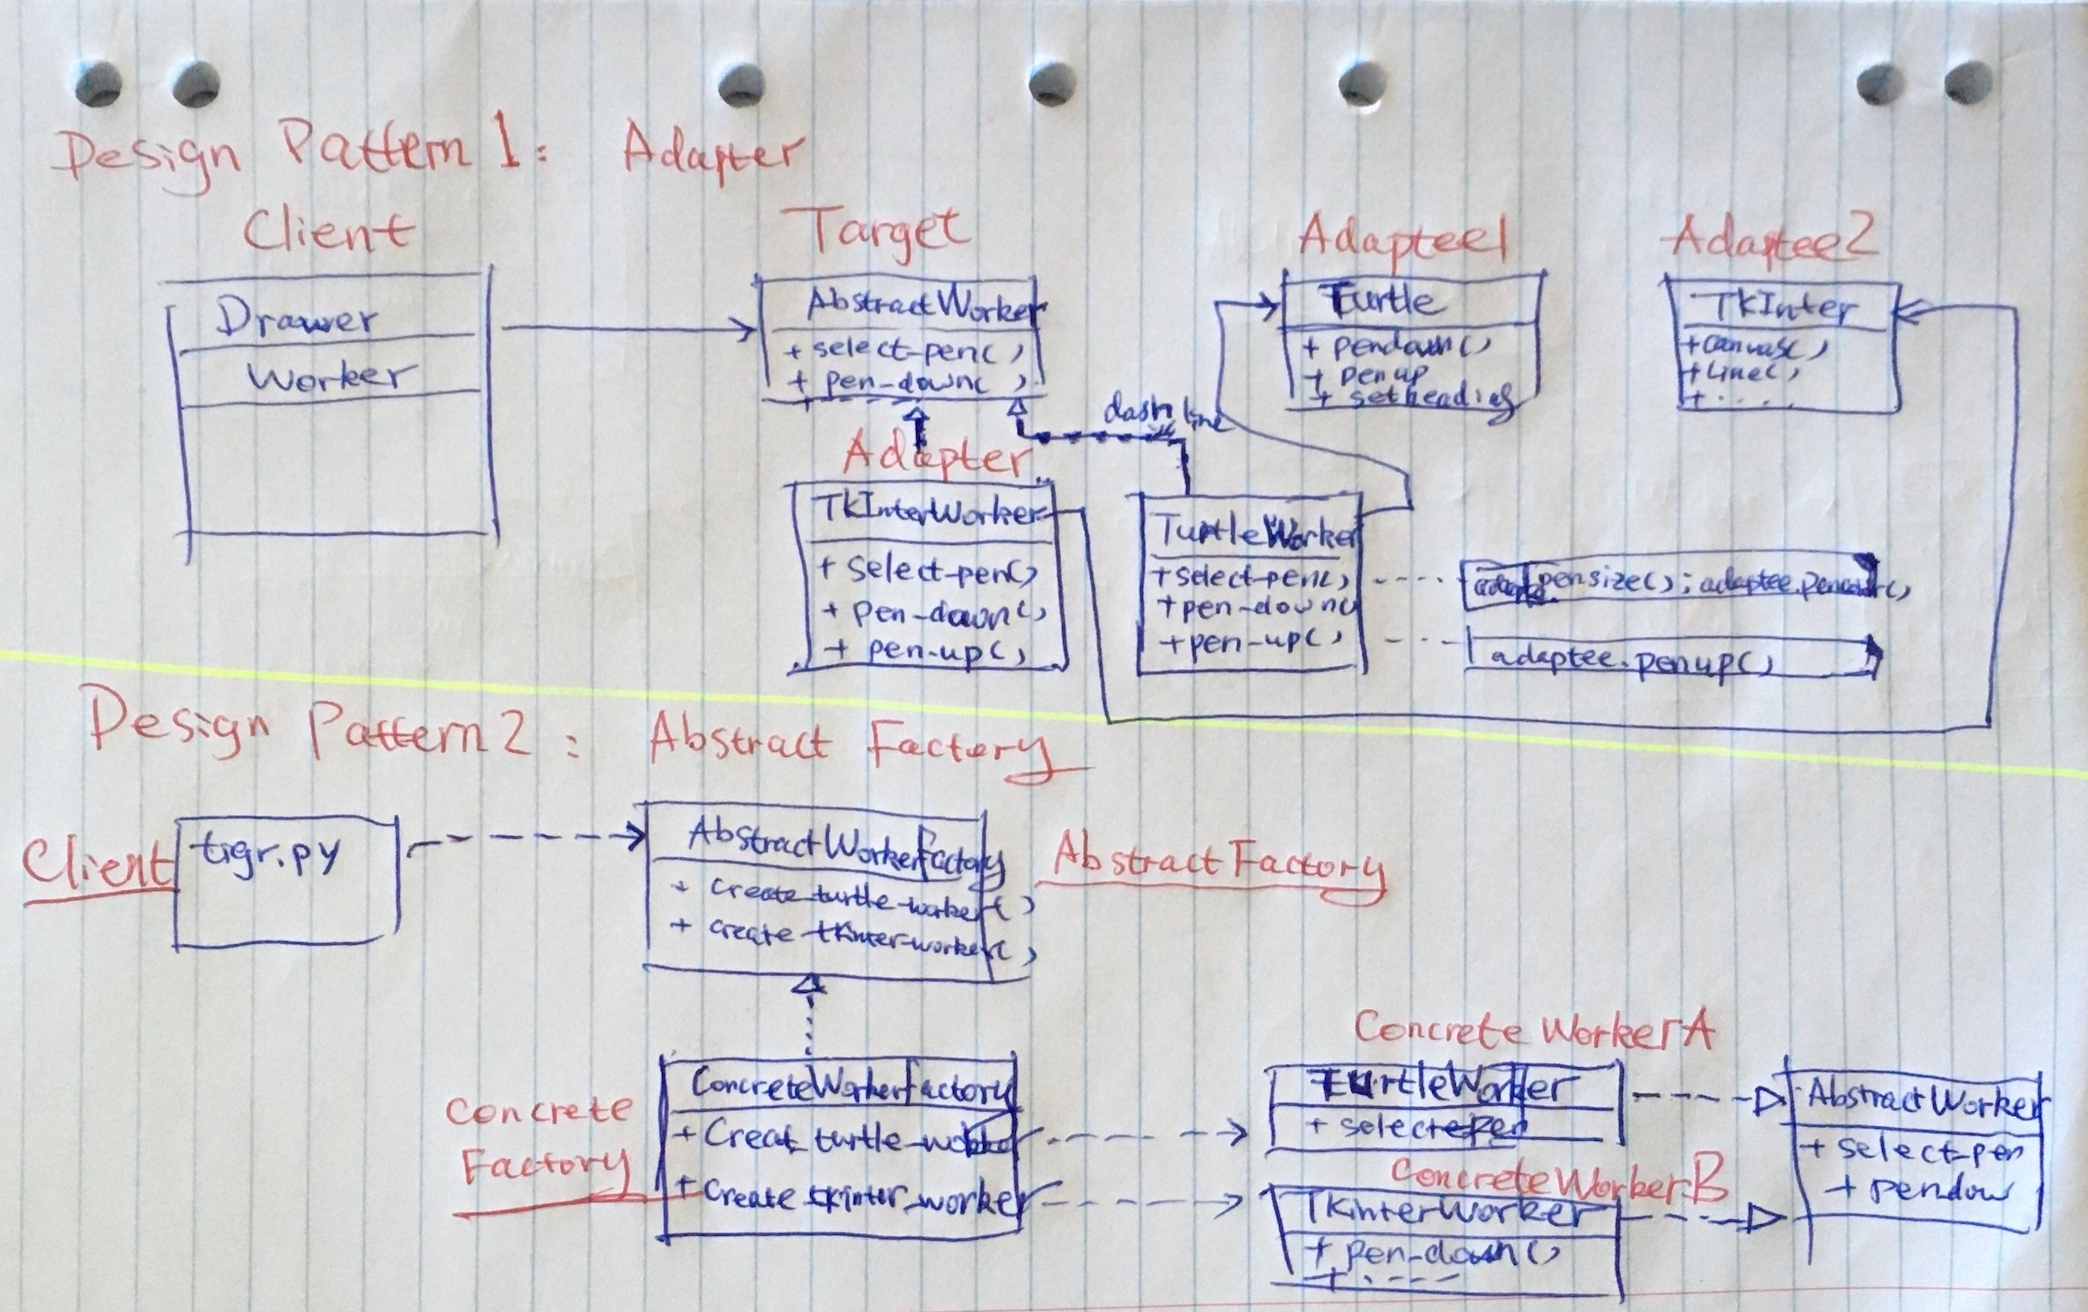 Design Pattern 1: Adapter
Client
Target
Adaptee1
Adaptee2
Drawer
Worker
AbstractWorker
+ select-pen()
+ pen-down()
+
Turtle
+ pendown()
+ penup
+ setheading
TKInter
+ canvas()
+ Line()
+ . . . .
dash line
Adapter
TKInterWorker
+ select-pen()
+ pen-down()
+ pen-up()
TurtleWorker
+ select-pen()
+ pen-down()
+ pen-up()
pensize(); adaptee.
adaptee.penup()
Design Pattern 2: Abstract Factory
Client
tigr.py
AbstractWorkerFactory
+ create-turtle-worker()
+ create-tkinter-worker()
AbstractFactory
Concrete Factory
ConcreteWorkerFactory
+ Creat_turtle_worker
+ create_tkinter_worker
Concrete WorkerA
TurtleWorker
+ selectpen
ConcreteWorkerB
TKinterWorker
+ pen-down()
+ . - - - -
AbstractWorker
+ select-pen
+ pendow